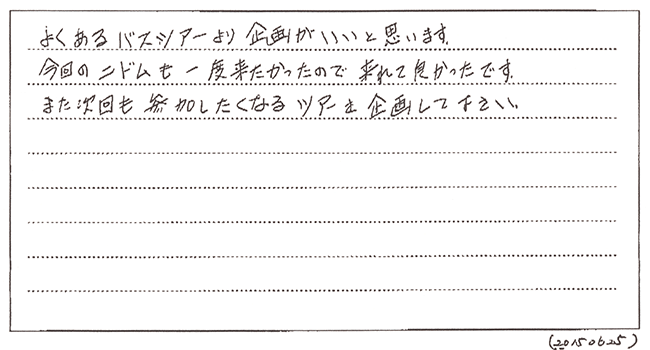 よくあるバスツアーより企画がいいと思います。
今回のニドムも一度来たかったので来れて良かったです。
また次回も参加したくなるツアーを企画して下さい。
(20150625)